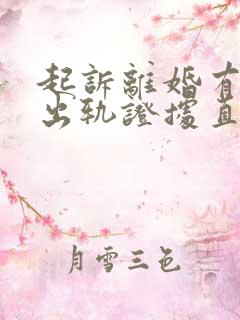 起訴離婚有
出轨證據直
月雪三色